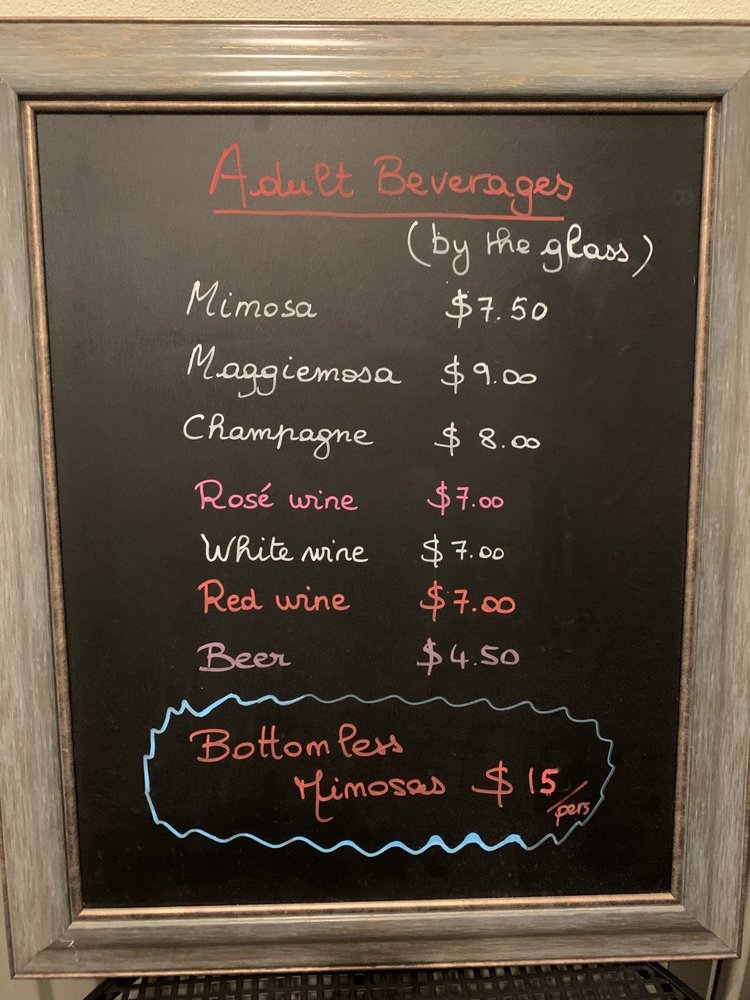 Adult Beverages
(by the glass)
Mimosa $7.50
Maggiemosa $9.00
Champagne $8.00
Rosé wine $7.00
White wine $7.00
Red wine $7.00
Beer $4.50
Bottomless
Mimosas $15/pers